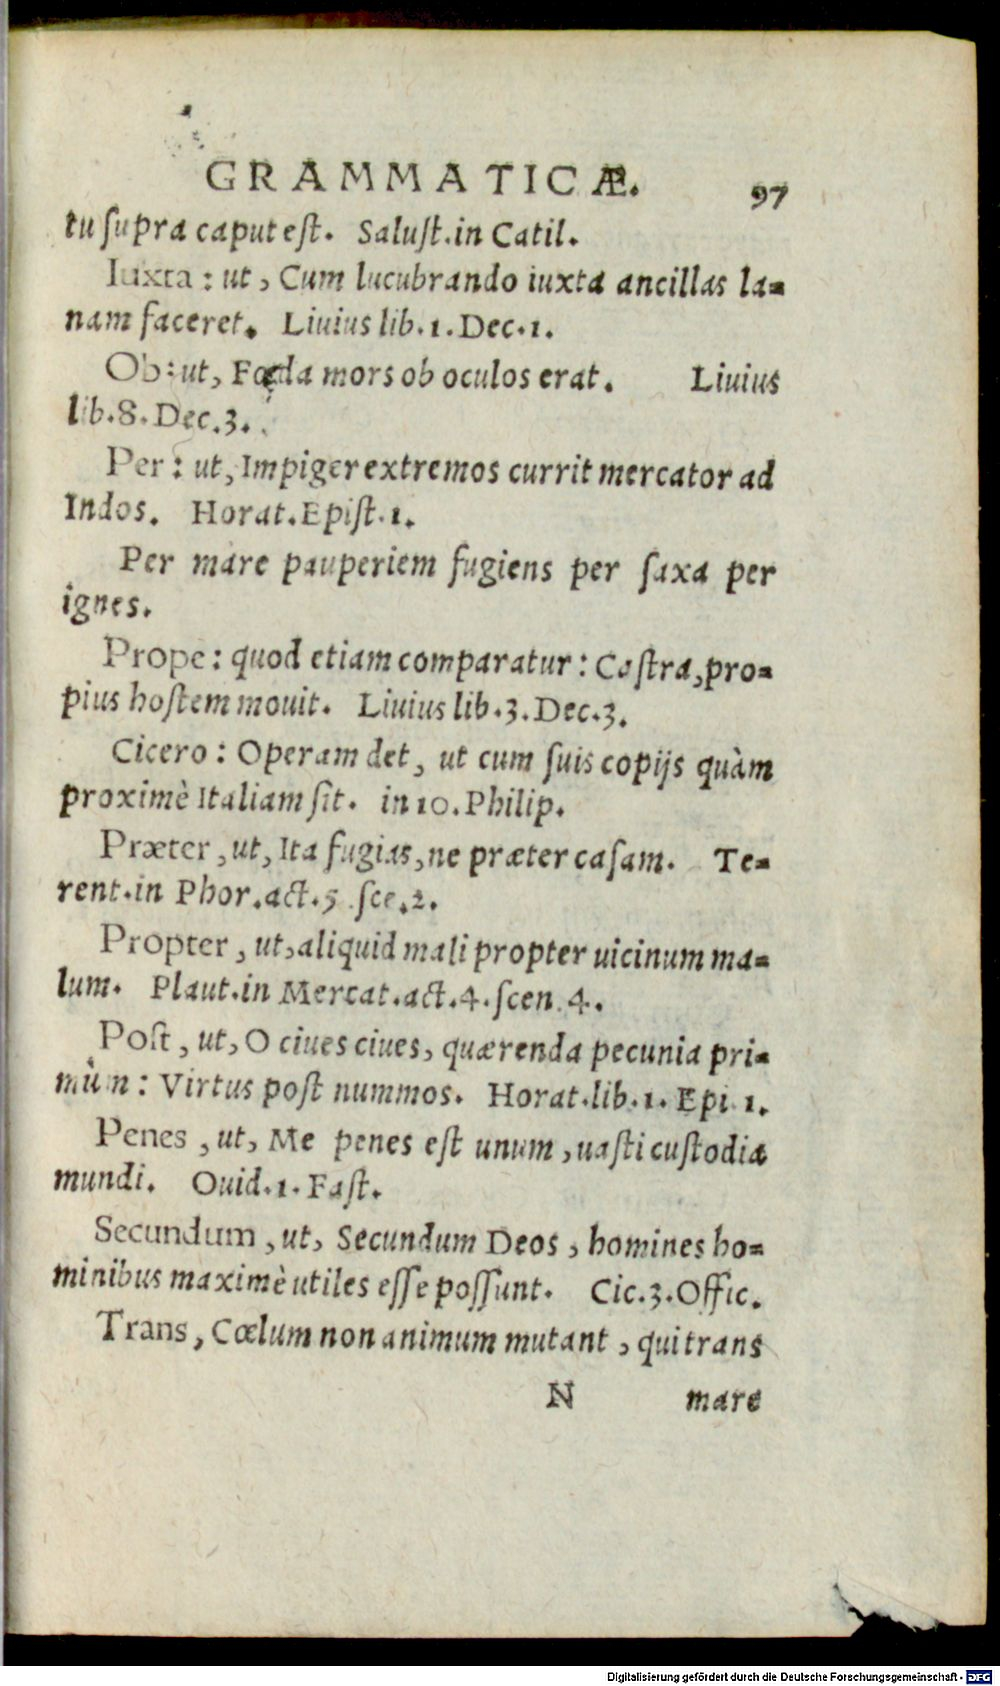 GRAMMATICÆ. 97
tu ſupra caput eſt. Saluſt.in Catil.
Iuxta : ut, Cum lucubrando iuxta ancillas la=
nam faceret. Liuius lib.1.Dec.1.
Ob : ut, Fœda mors ob oculos erat. Liuius
lib.8.Dec.3.
Per : ut, Impiger extremos currit mercator ad
Indos. Horat.Epiſt.1.
Per mare pauperiem fugiens per ſaxa per
ignes.
Prope : quod etiam comparatur : Caſtra, pro=
pius hoſtem mouit. Liuius lib.3.Dec.3.
Cicero : Operam det, ut cum ſuis copijs quàm
proximè Italiam ſit. in 10.Philip.
Præter, ut, Ita fugias, ne præter caſam. Te=
rent.in Phor.act.5 ſce.2.
Propter, ut, aliquid mali propter uicinum ma=
lum. Plaut.in Mercat.act.4.ſcen.4.
Poſt, ut, O ciues ciues, quærenda pecunia pri=
mùm : Virtus poſt nummos. Horat.lib.1. Epi.1.
Penes, ut, Me penes eſt unum, uaſti cuſtodia
mundi. Ouid.1.Faſt.
Secundum, ut, Secundum Deos, homines ho=
minibus maximè utiles eſſe poſſunt. Cic.3.Offic.
Trans, Cœlum non animum mutant, qui trans
N mare
Digitalisierung gefördert durch die Deutsche Forschungsgemeinschaft - DFG